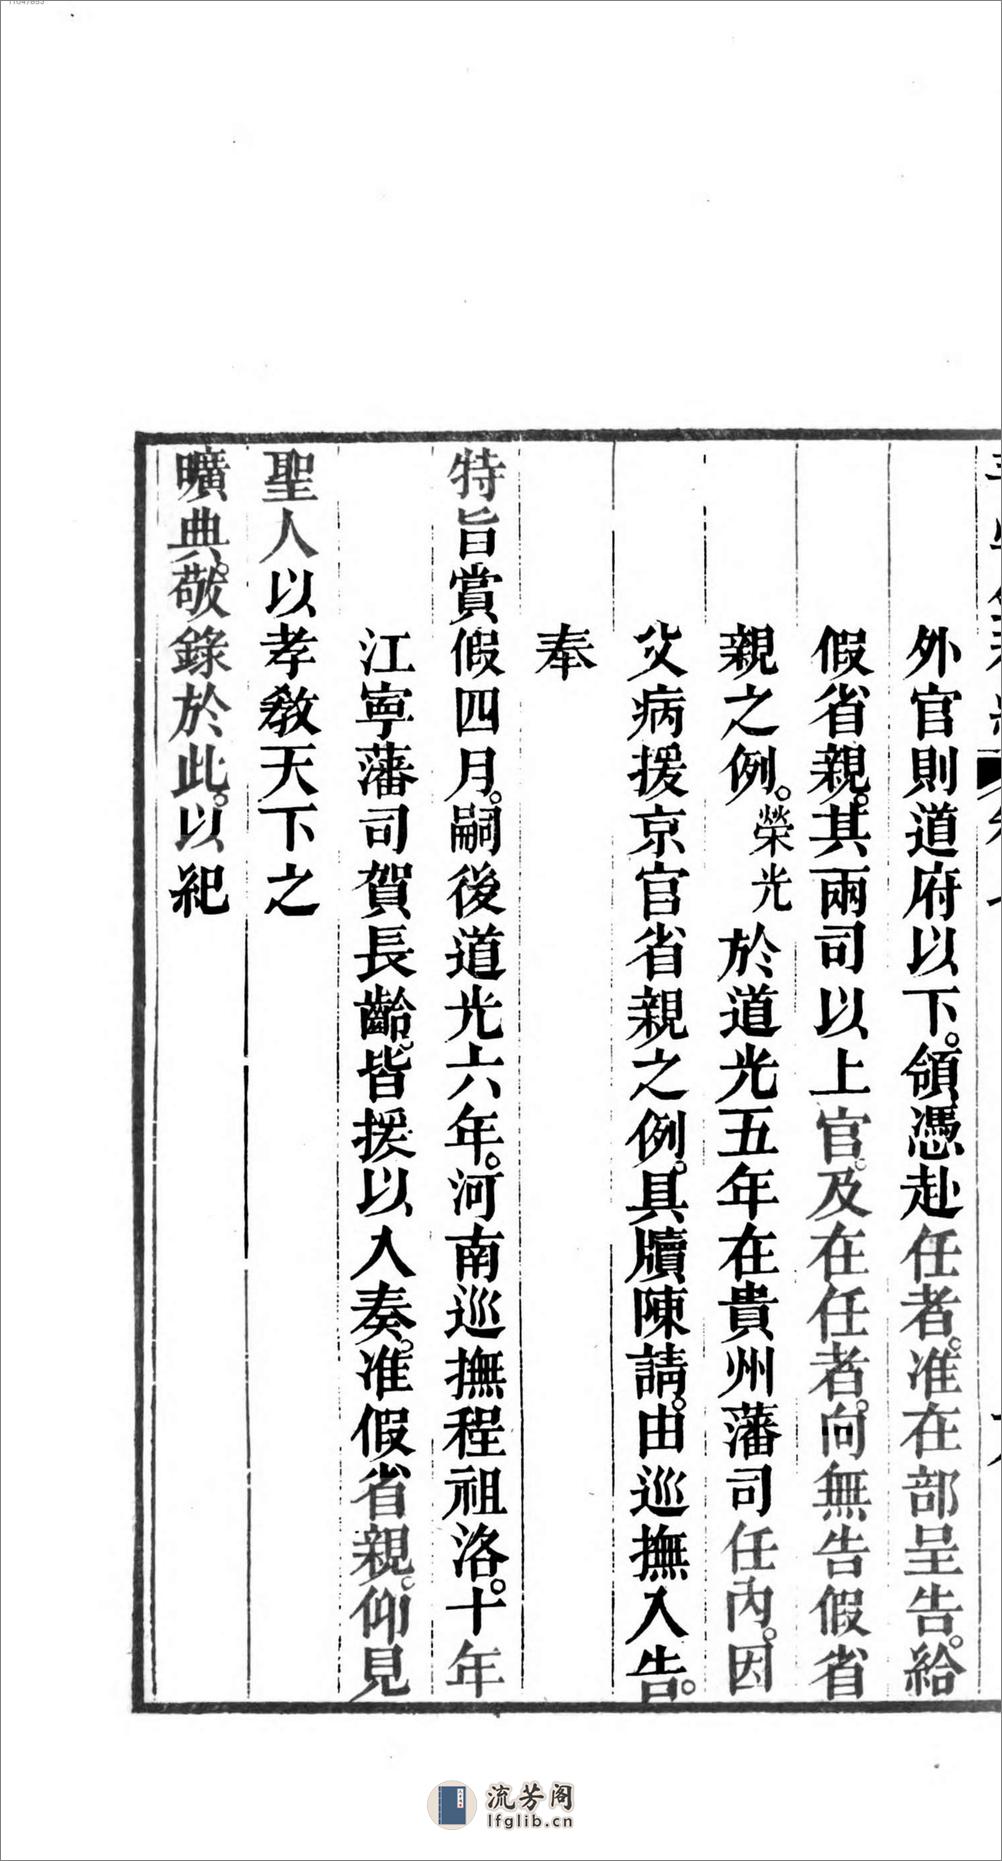 外官則道府以下。領憑赴任者。准在部呈告。給
假省親。其兩司以上官。及在任者。向無告假省
親之例。榮光於道光五年在貴州藩司任內。因
父病援京官省親之例。具牘陳請。由巡撫入告。
奉
特旨賞假四月。嗣後道光六年。河南巡撫程祖洛。十年
江寧藩司賀長齡。皆援以入奏。准假省親。仰見
聖人以孝教天下之
曠典。敬錄於此。以紀
流芳阁
lfglib.cn